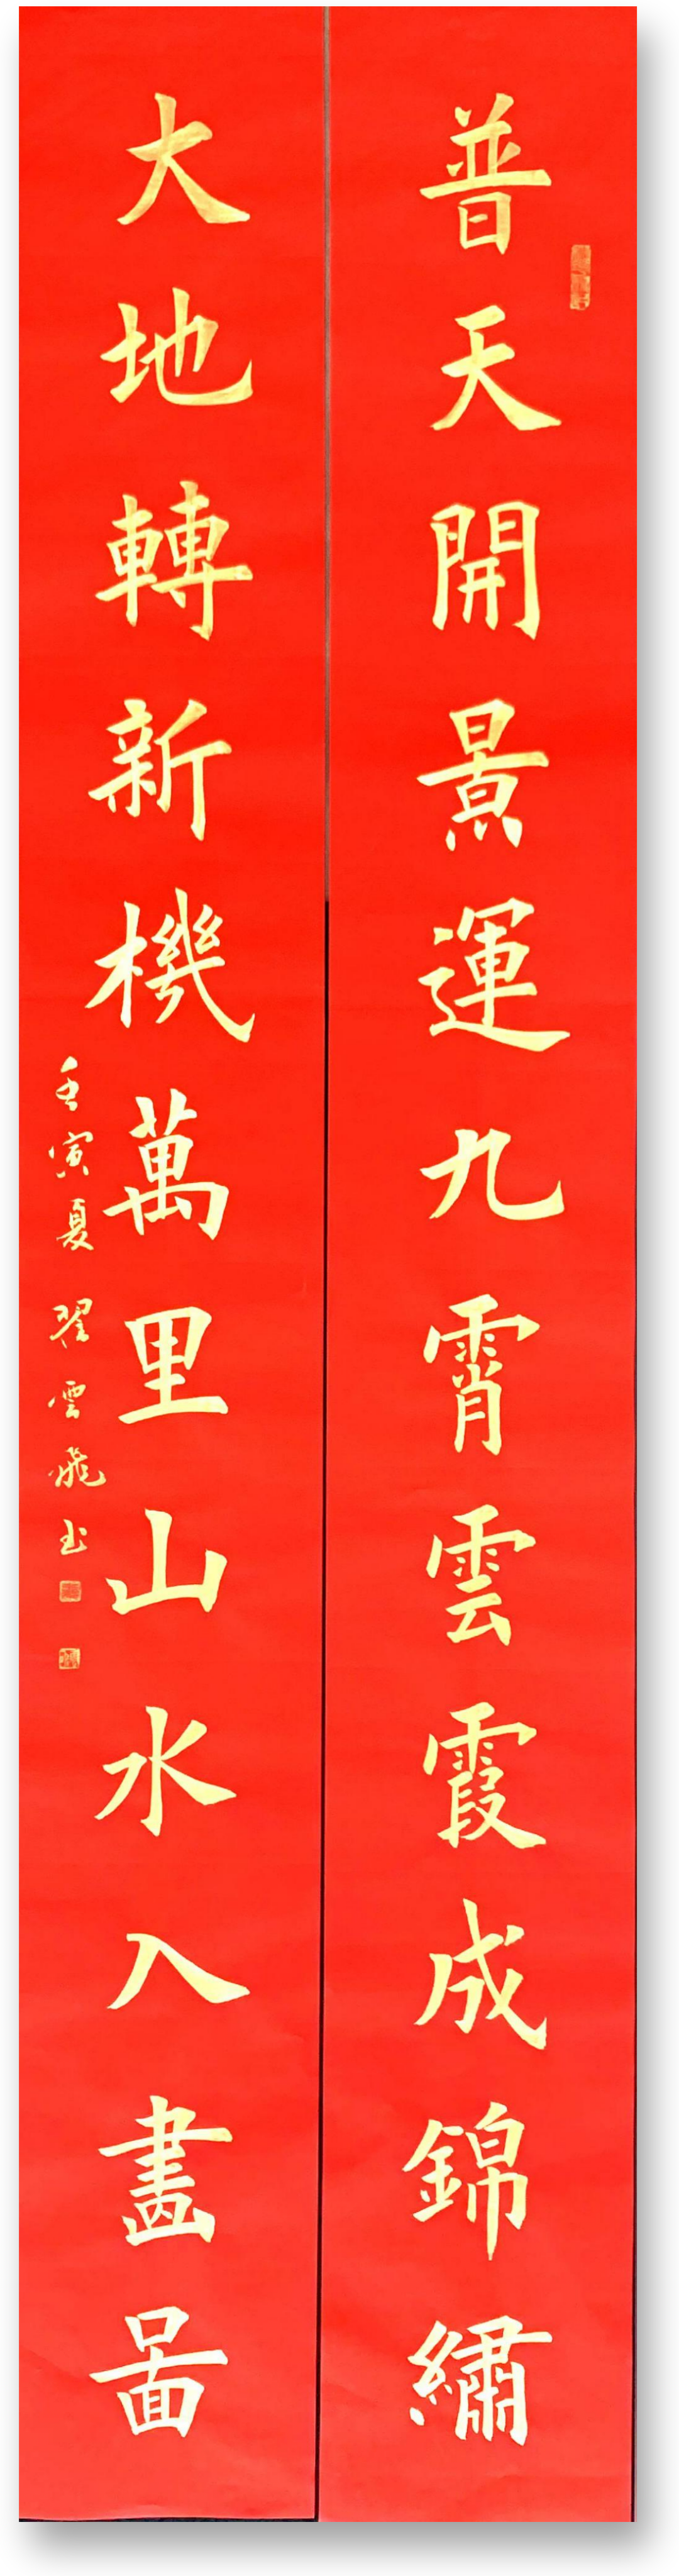 普天開景運九霄雲霞成錦繡
大地轉新機萬里山水入畫圖
壬寅夏 翟雲飛书